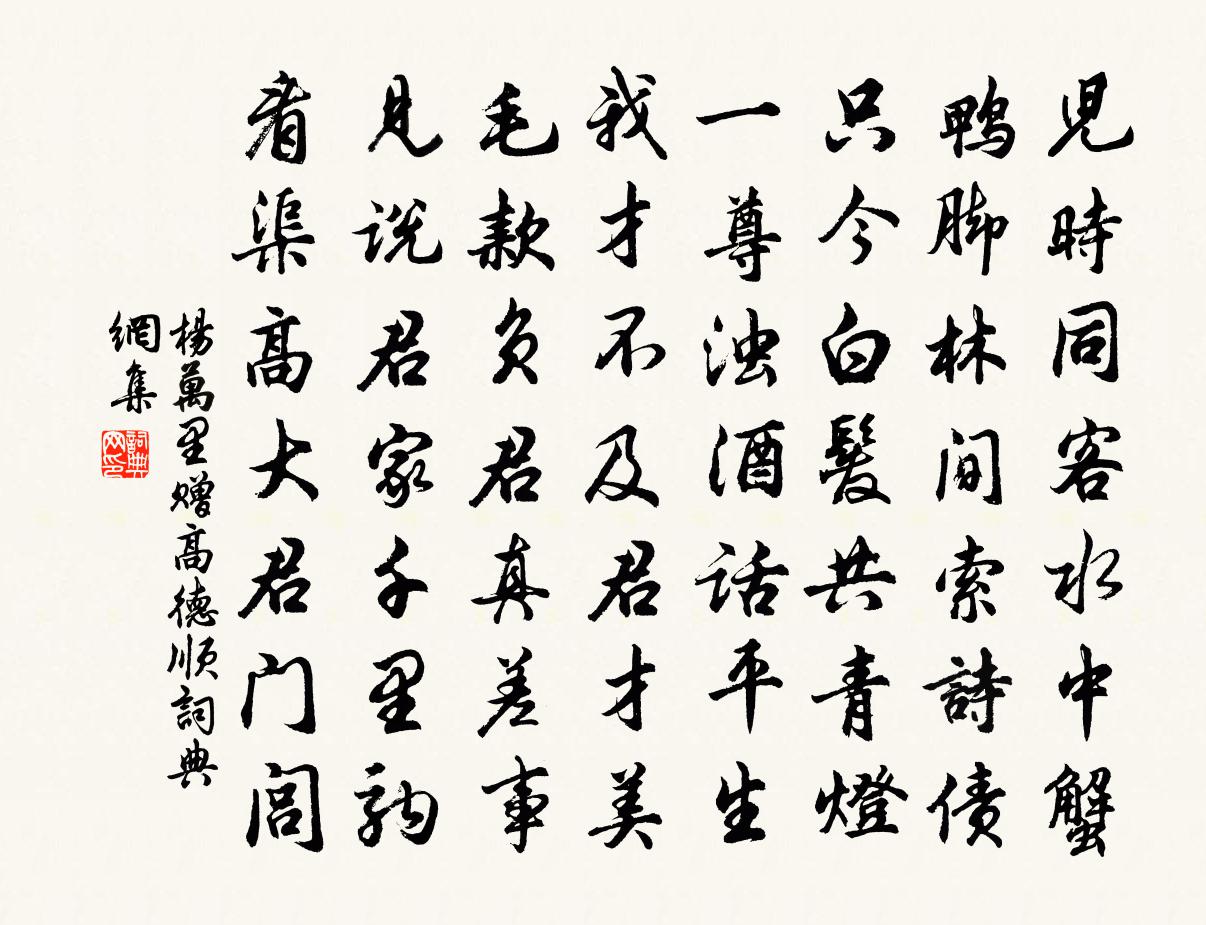 児時同客水中蟹
鴨脚林間索詩債
只今白髮共青燈
一尊浊酒話平生
我才不及君才美
毛款負君真差事
見說君家千里駒
看渠高大君門閭
楊萬里贈高德順詞典
網集
詞典网印